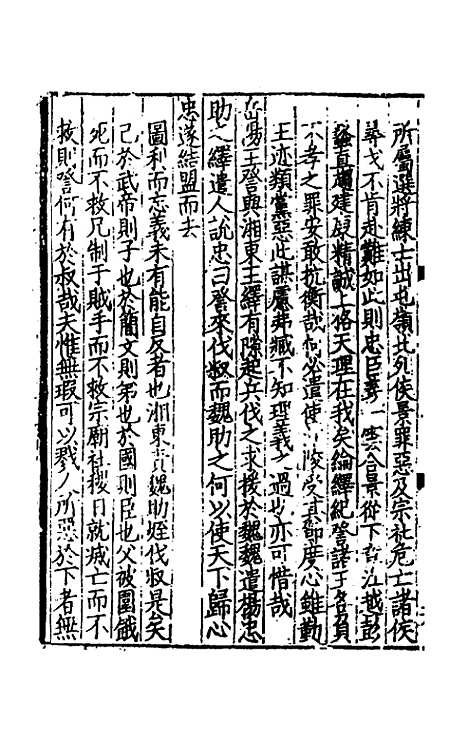 所屬選將練士出屯嶺北列侯景罪惡及宗社危亡諸侯
尋戈不肯赴難如此則忠臣義一雲合景從下章江越彭
蠡直趨建康精誠上格天理在我矣綸繹紀詧諸王各負
不孝之罪安敢抗衡哉何必遣使江陵受其節度心雖勤
王迹類黨惡此謀慮弗臧不知理義之過也亦可惜哉
岳陽王詧與湘東王繹有隙起兵伐之求援於魏魏遣楊忠
助之繹遣人說忠曰詧來伐叔而魏助之何以使天下歸心
忠遂結盟而去
圖利而忘義未有能自反者也湘東責魏助姪伐叔是矣
己於武帝則子也於簡文則弟也於國則臣也父被圍餓
死而不救兄制于賊手而不救宗廟社稷日就滅亡而不
救則詧何有於叔哉夫惟無瑕可以戮人所惡於下者無